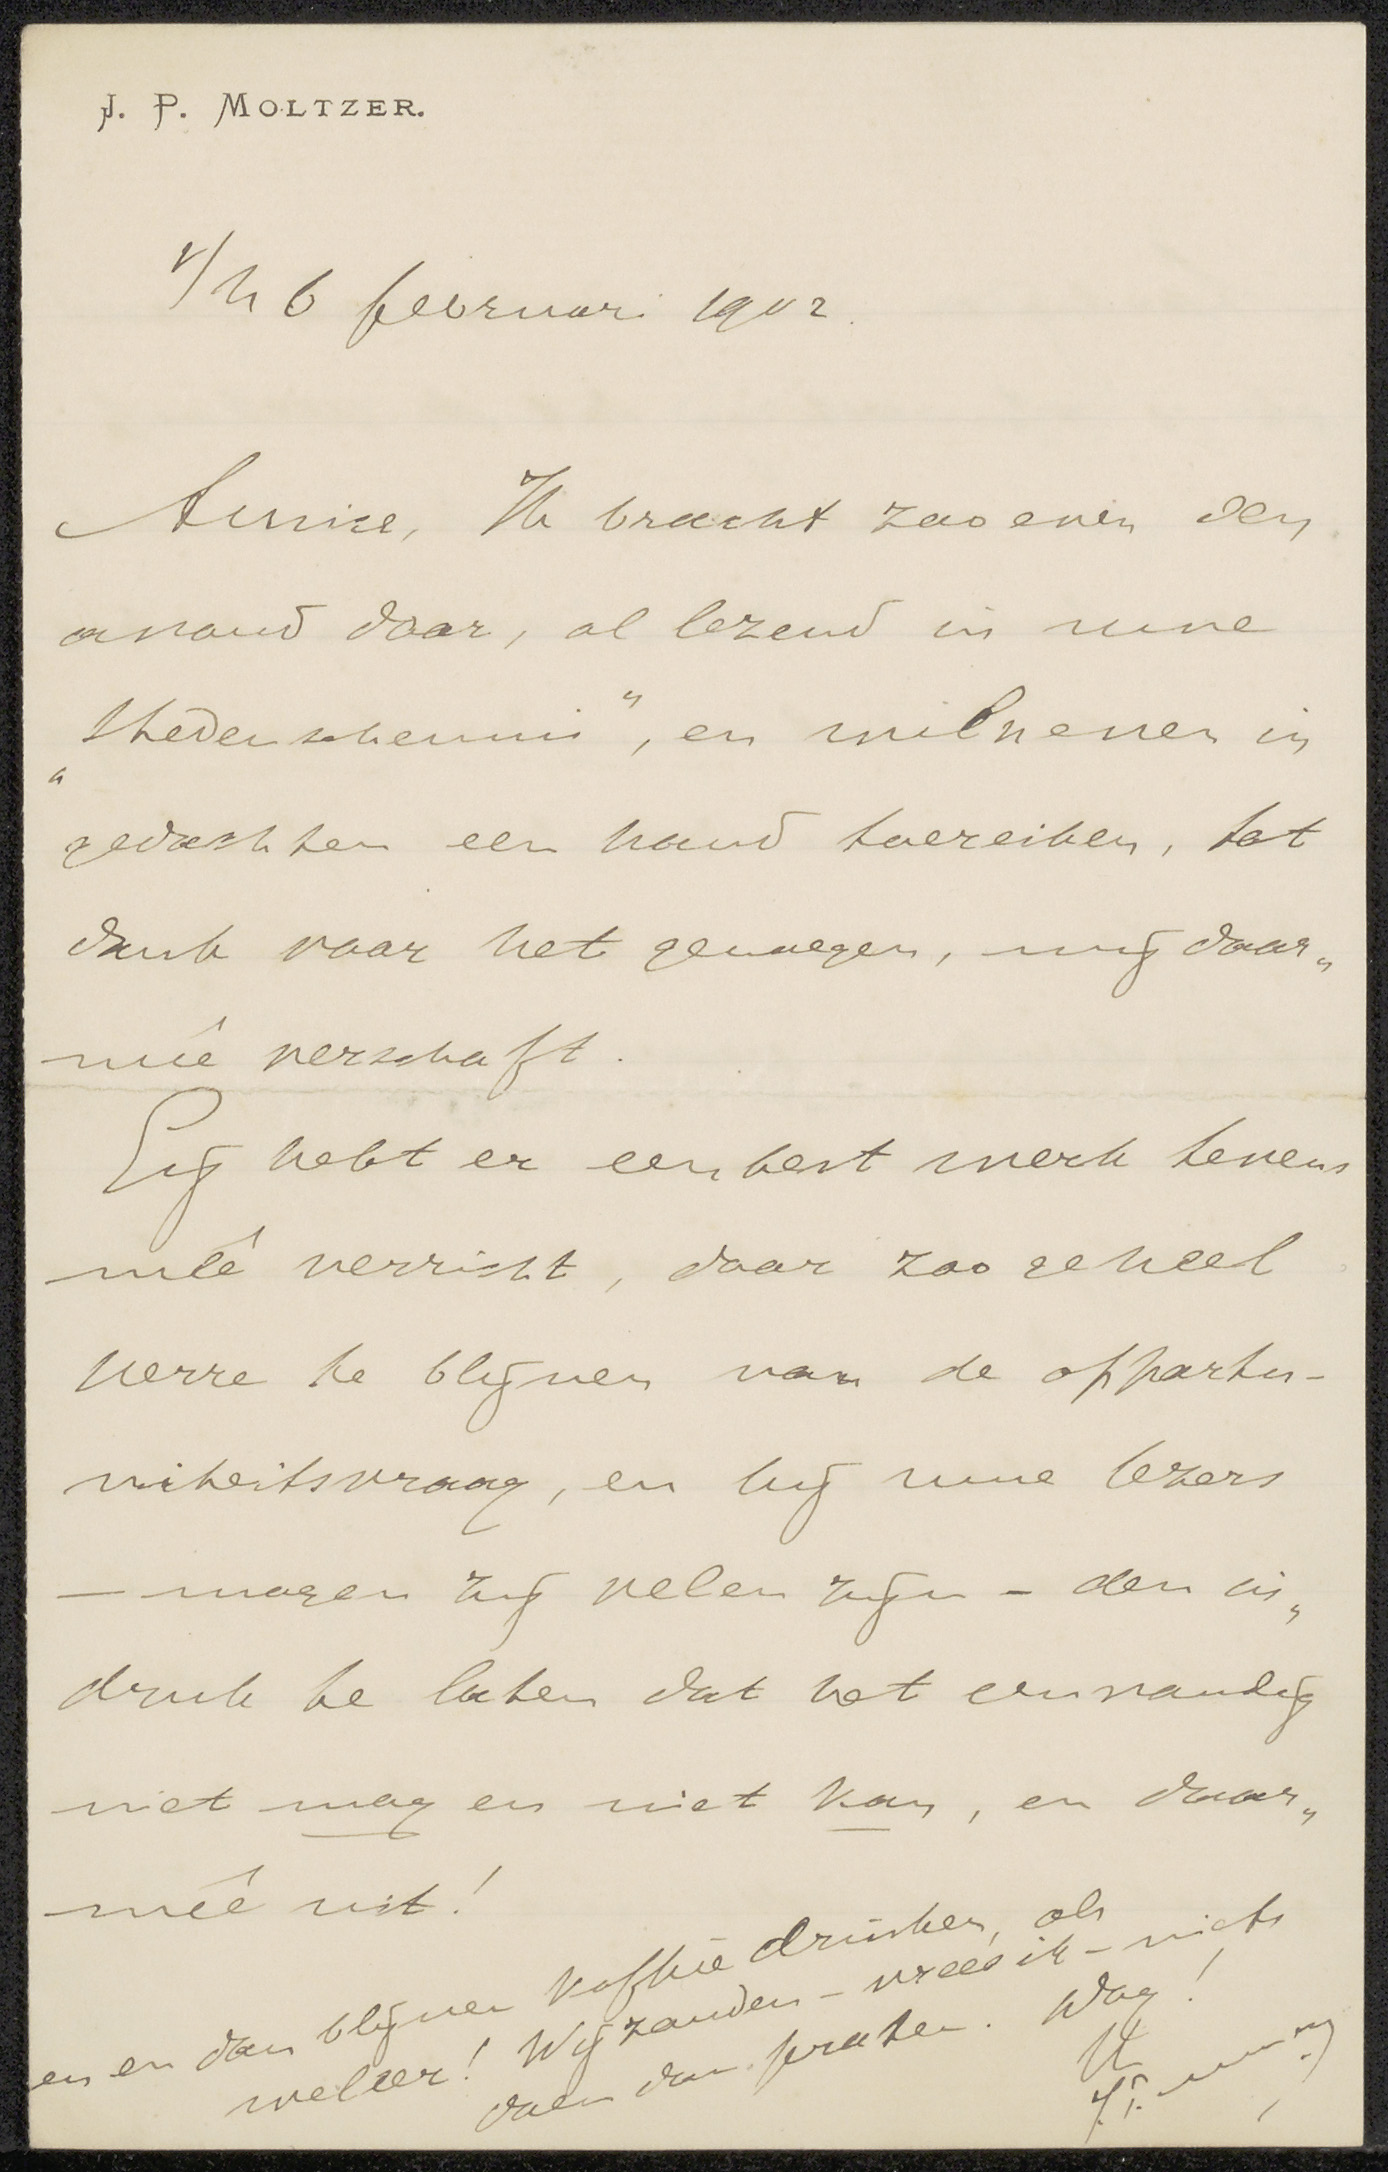 J. P. MOLTZER.
v/h 6 februari 1902.
Amice, Ik bracht zooeven den
avond door, al lezend in uwe
"Stedenschennis", en wil u even in
gedachten een hand toereiken, tot
dank voor het genoegen, mij daar„
meê verschaft.
Gij hebt er een best werk tevens
meê verricht, door zoo geheel
verre te blijven van de opportu-
niteitsvraag, en bij uwe lezers
— mogen zij velen zijn — den in„
druk te laten dat het eenvoudig
niet mag en niet kan, en daar„
meê uit!
en en dan blijven koffie drinken, als
weleer! Wij zouden – vrees ik – niets
doen dan praten. Dag!